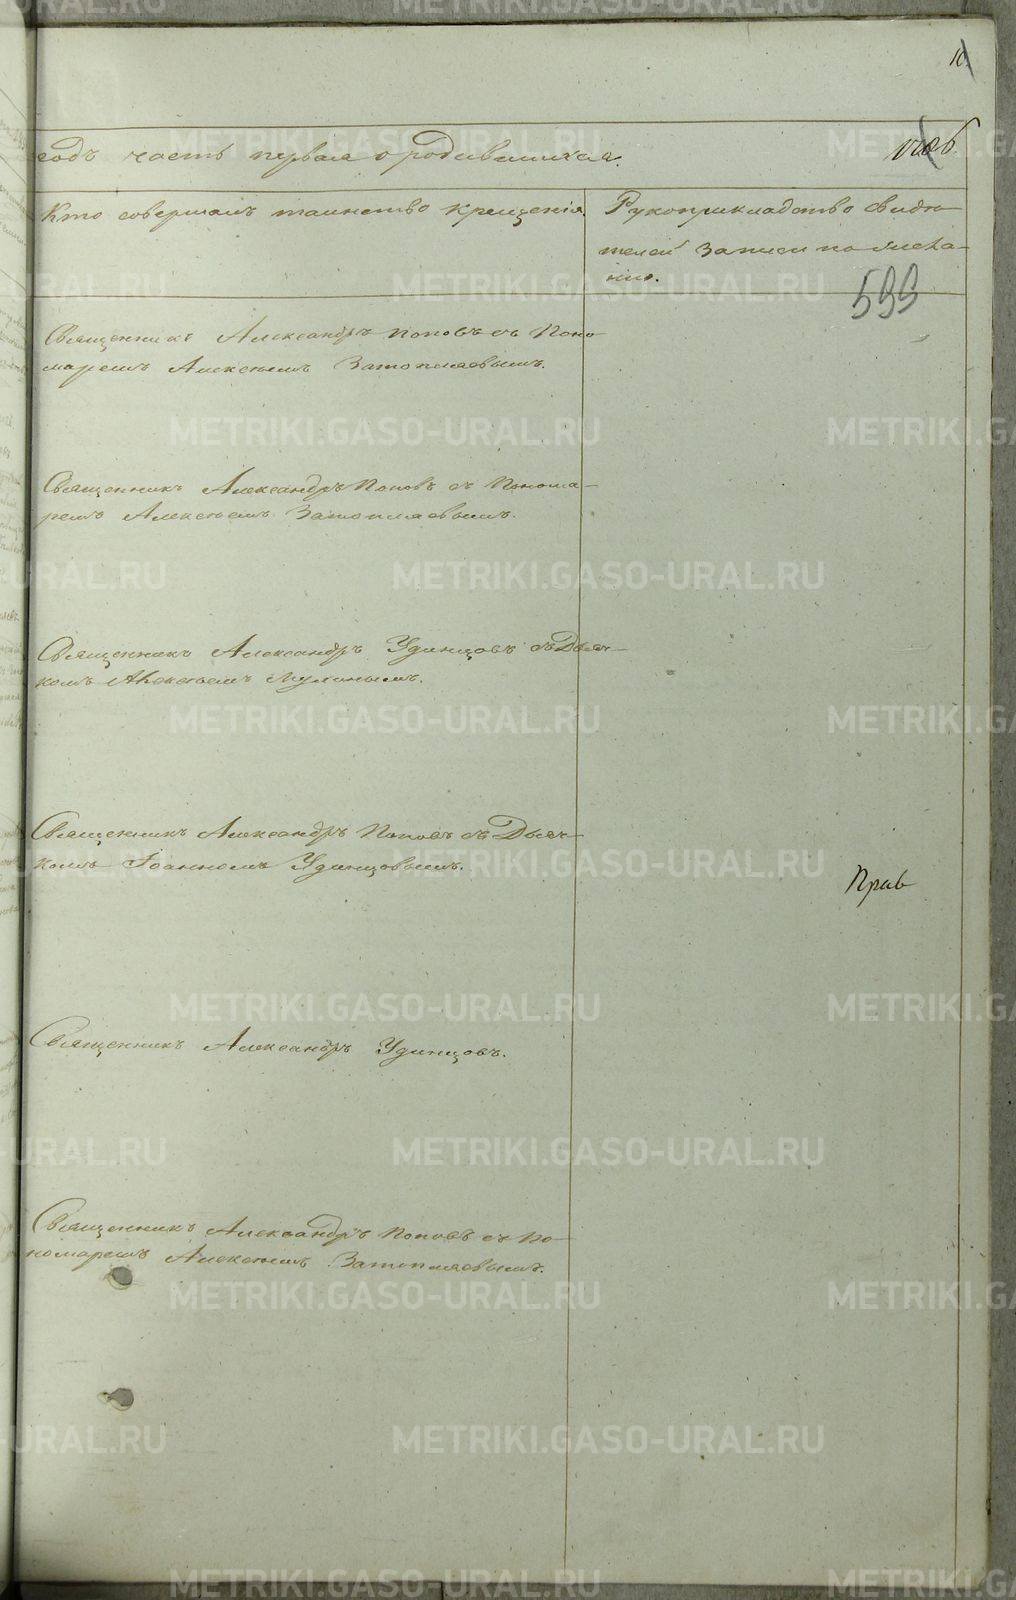 годъ часть первая о родившихся.
Кто совершалъ таинство крещенія.
Рукоприкладство свидѣ-
телей записи по жела-
нію.
599
Священникъ Александръ Поповъ съ Поно
маремъ Алексѣемъ Затопляевымъ.
Священникъ Александръ Поповъ съ Понома-
ремъ Алексѣемъ Затопляевымъ.
Священникъ Александръ Удинцовъ съ Дьяч-
комъ Алексѣемъ
Священникъ Александръ Поповъ съ Дьяч-
комъ Іоанномъ Удинцовымъ.
Прав
Священникъ Александръ Удинцовъ.
Священникъ Александръ Поповъ съ По-
номаремъ Алексѣемъ Затопляевымъ.
METRIKI.GASO-URAL.RU